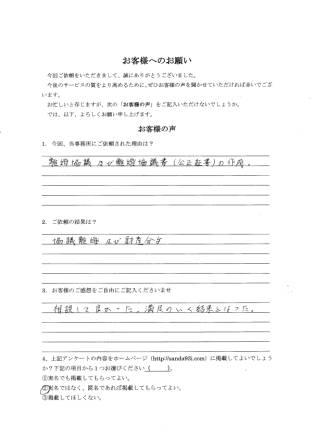 お客様へのお願い
今回ご依頼をいただきまして、誠にありがとうございました。
今後のサービスの質をより高めるために、ぜひお客様の声を聞かせていただければ幸いでござ
います。
お忙しいと存じますが、次の「お客様の声」をご記入いただけないでしょうか。
では、以下、よろしくお願い申し上げます。
お客様の声
1. 今回、当事務所にご依頼された理由は?
離婚協議 及び離婚協議書(公正証書)の作成。
2. ご依頼の結果は?
協議離婚 及び 財産分与
3. お客様のご感想をご自由にご記入くださいませ
相談して良かった。満足のいく結果となった。
4. 上記アンケートの内容をホームページ(http://sanda93i.com)に掲載してよいでしょう
か?下記の項目から1つお選びください( )。
①実名でも掲載してもらってよい。
②実名ではなく、匿名であれば掲載してもらってよい。
③掲載してほしくない。